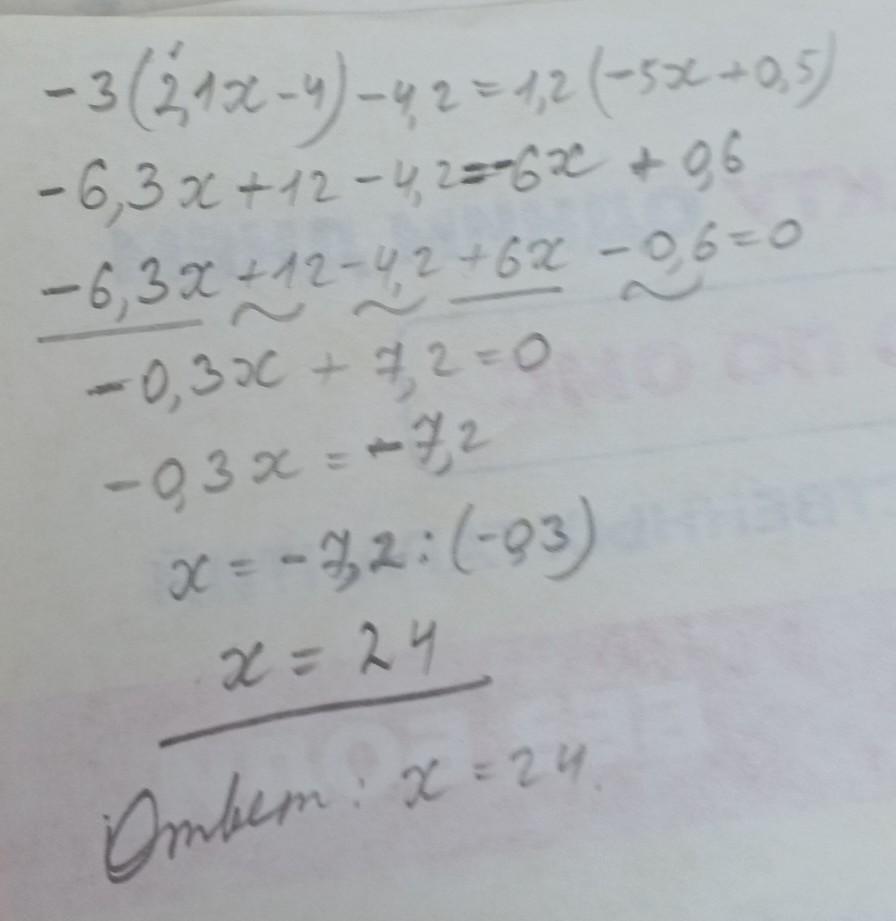 -3(2,1x-4)-4,2=1,2(-5x+0,5)
-6,3x+12-4,2=-6x+0,6
-6,3x+12-4,2+6x-0,6=0
-0,3x+7,2=0
-0,3x=-7,2
x=-7,2:(-0,3)
x=24
Ответ: x=24.